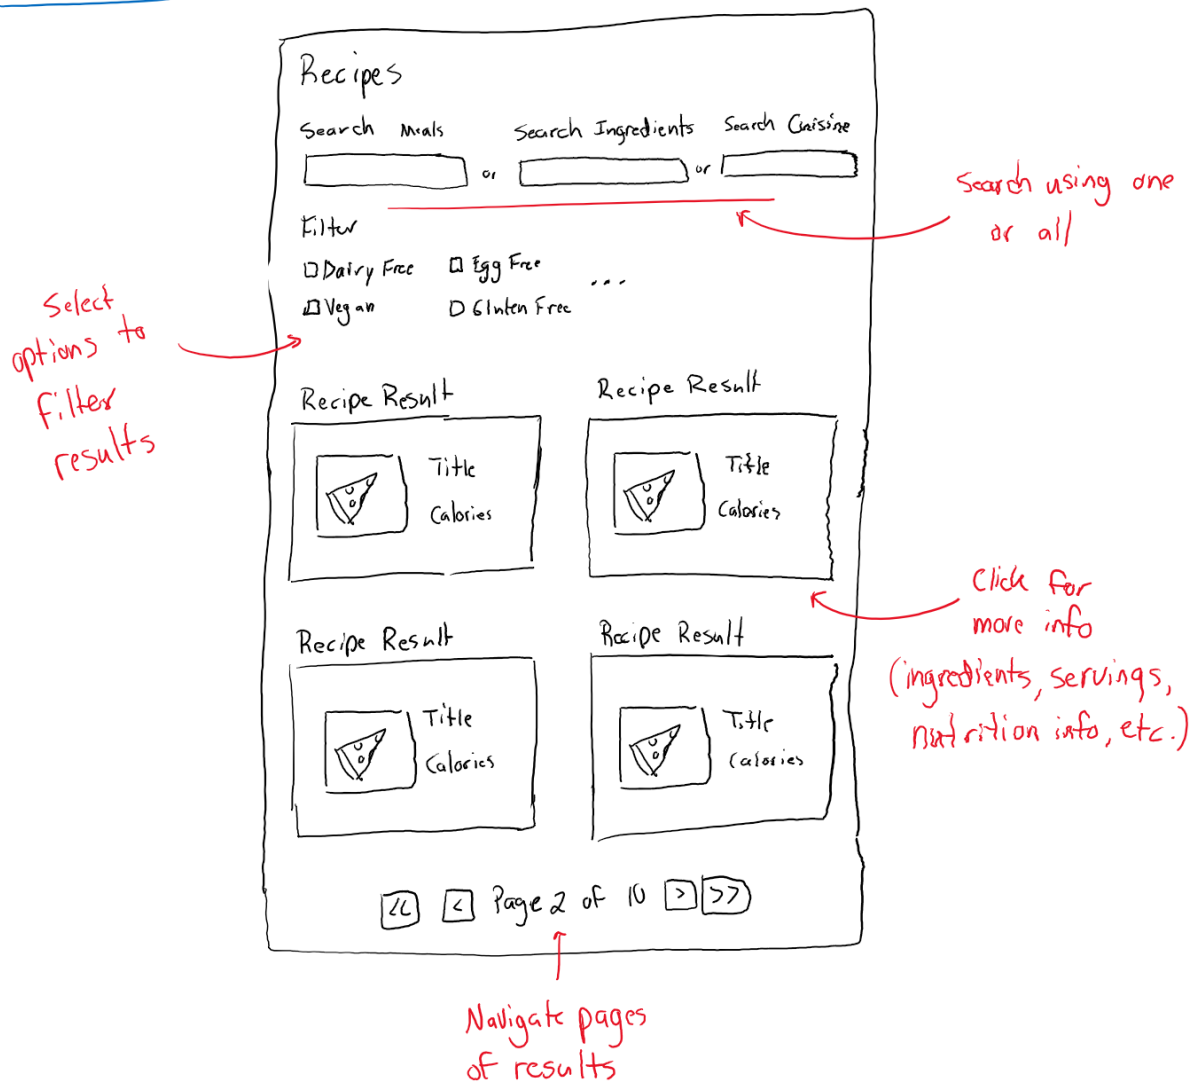 Recipes
Search Meals
Search Ingredients
Search Cuisine
or
or
Search using one
or all
Filter
Dairy Free
Egg Free
...
Vegan
Gluten Free
Select
options to
filter
results
Recipe Result
Recipe Result
Title
Calories
Title
Calories
Click for
more info
(ingredients, servings,
nutrition info, etc.)
Recipe Result
Recipe Result
Title
Calories
Title
Calories
<< < Page 2 of 10 > >>
Navigate pages
of results